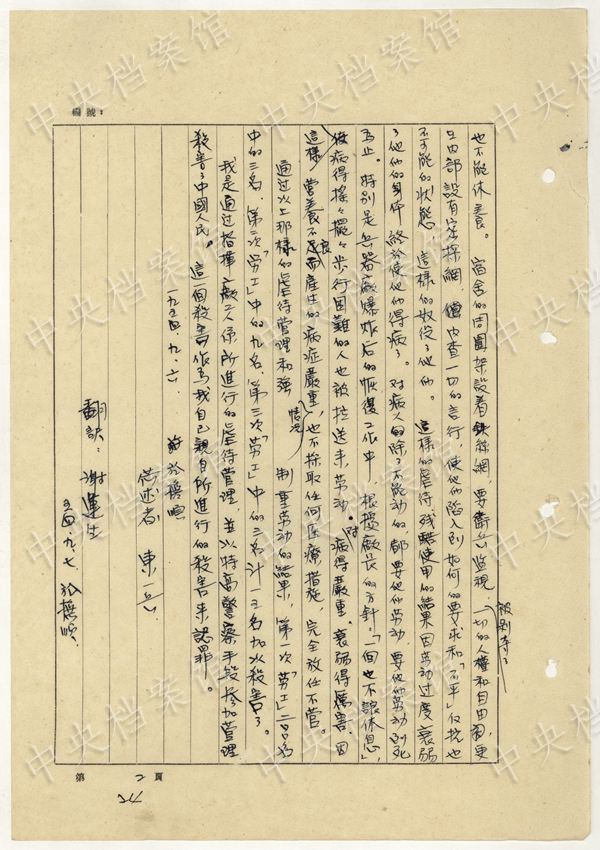 編號：
也不能休養。宿舍的周圍架設着鉄絲網，要衛兵監視，一切的人權和自由被剝奪了
且內部設有密探網，偵查一切的言行，使他們陷入到如何的要求和「不平」仅抗也
不可能的狀態，這樣的奴役了他们。這樣的虐待残酷使用的結果因劳动过度衰弱
了他们的身体，終於使他们得病了。对病人的除了不能动的都要他们劳动，要他们劳动到死
为止。特別是兵器廠爆炸后的恢復工作中，根據廠長的方針「一個也不讓休息」，
使病得搖々擺々步行困難的人也被拉送来劳动。病得嚴重、衰弱得厲害、因
這樣营养不良而產生的病症嚴重情况，也不採取任何医療措施，完全放任不管。
通过以上那様的虐待管理和强制重劳动的結果，第一次「劳工」二百名
中的三名，第二次「劳工」中的九名，第三次「劳工」中的三名計一五名加以殺害了。
我是通过指揮廠工人係所進行的虐待管理，並以特高警察手段参加管理
殺害了中國人民。這一個殺害作為我自己親自所進行的殺害来認罪。
一九五四、九、六
於撫順
供述者 東一兵
翻訳：谢運生
五四、九、七、於撫順
第 2 頁
中央档案馆